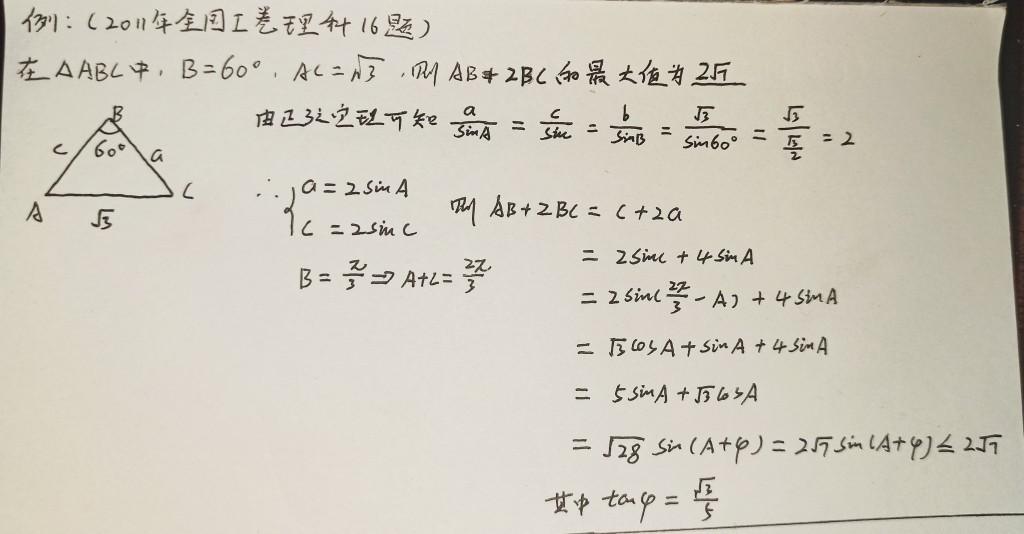 例：（2011年全国I卷理科16题）
在△ABC中，B=60°，AC=√3，则AB+2BC的最大值为2√7
由正弦定理可知 a/sinA = c/sinc = b/sinB = √3/sin60° = √3/(√3/2) = 2
B
60°
c
a
A
C
√3
∴ { a = 2sinA
c = 2sinc
则 AB+2BC = c+2a
B = π/3 ⇒ A+C = 2π/3
= 2sinc + 4sinA
= 2sin(2π/3 - A) + 4sinA
= √3cosA + sinA + 4sinA
= 5sinA + √3cosA
= √28 sin(A+φ) = 2√7 sin(A+φ) ≤ 2√7
其中 tanφ = √3/5